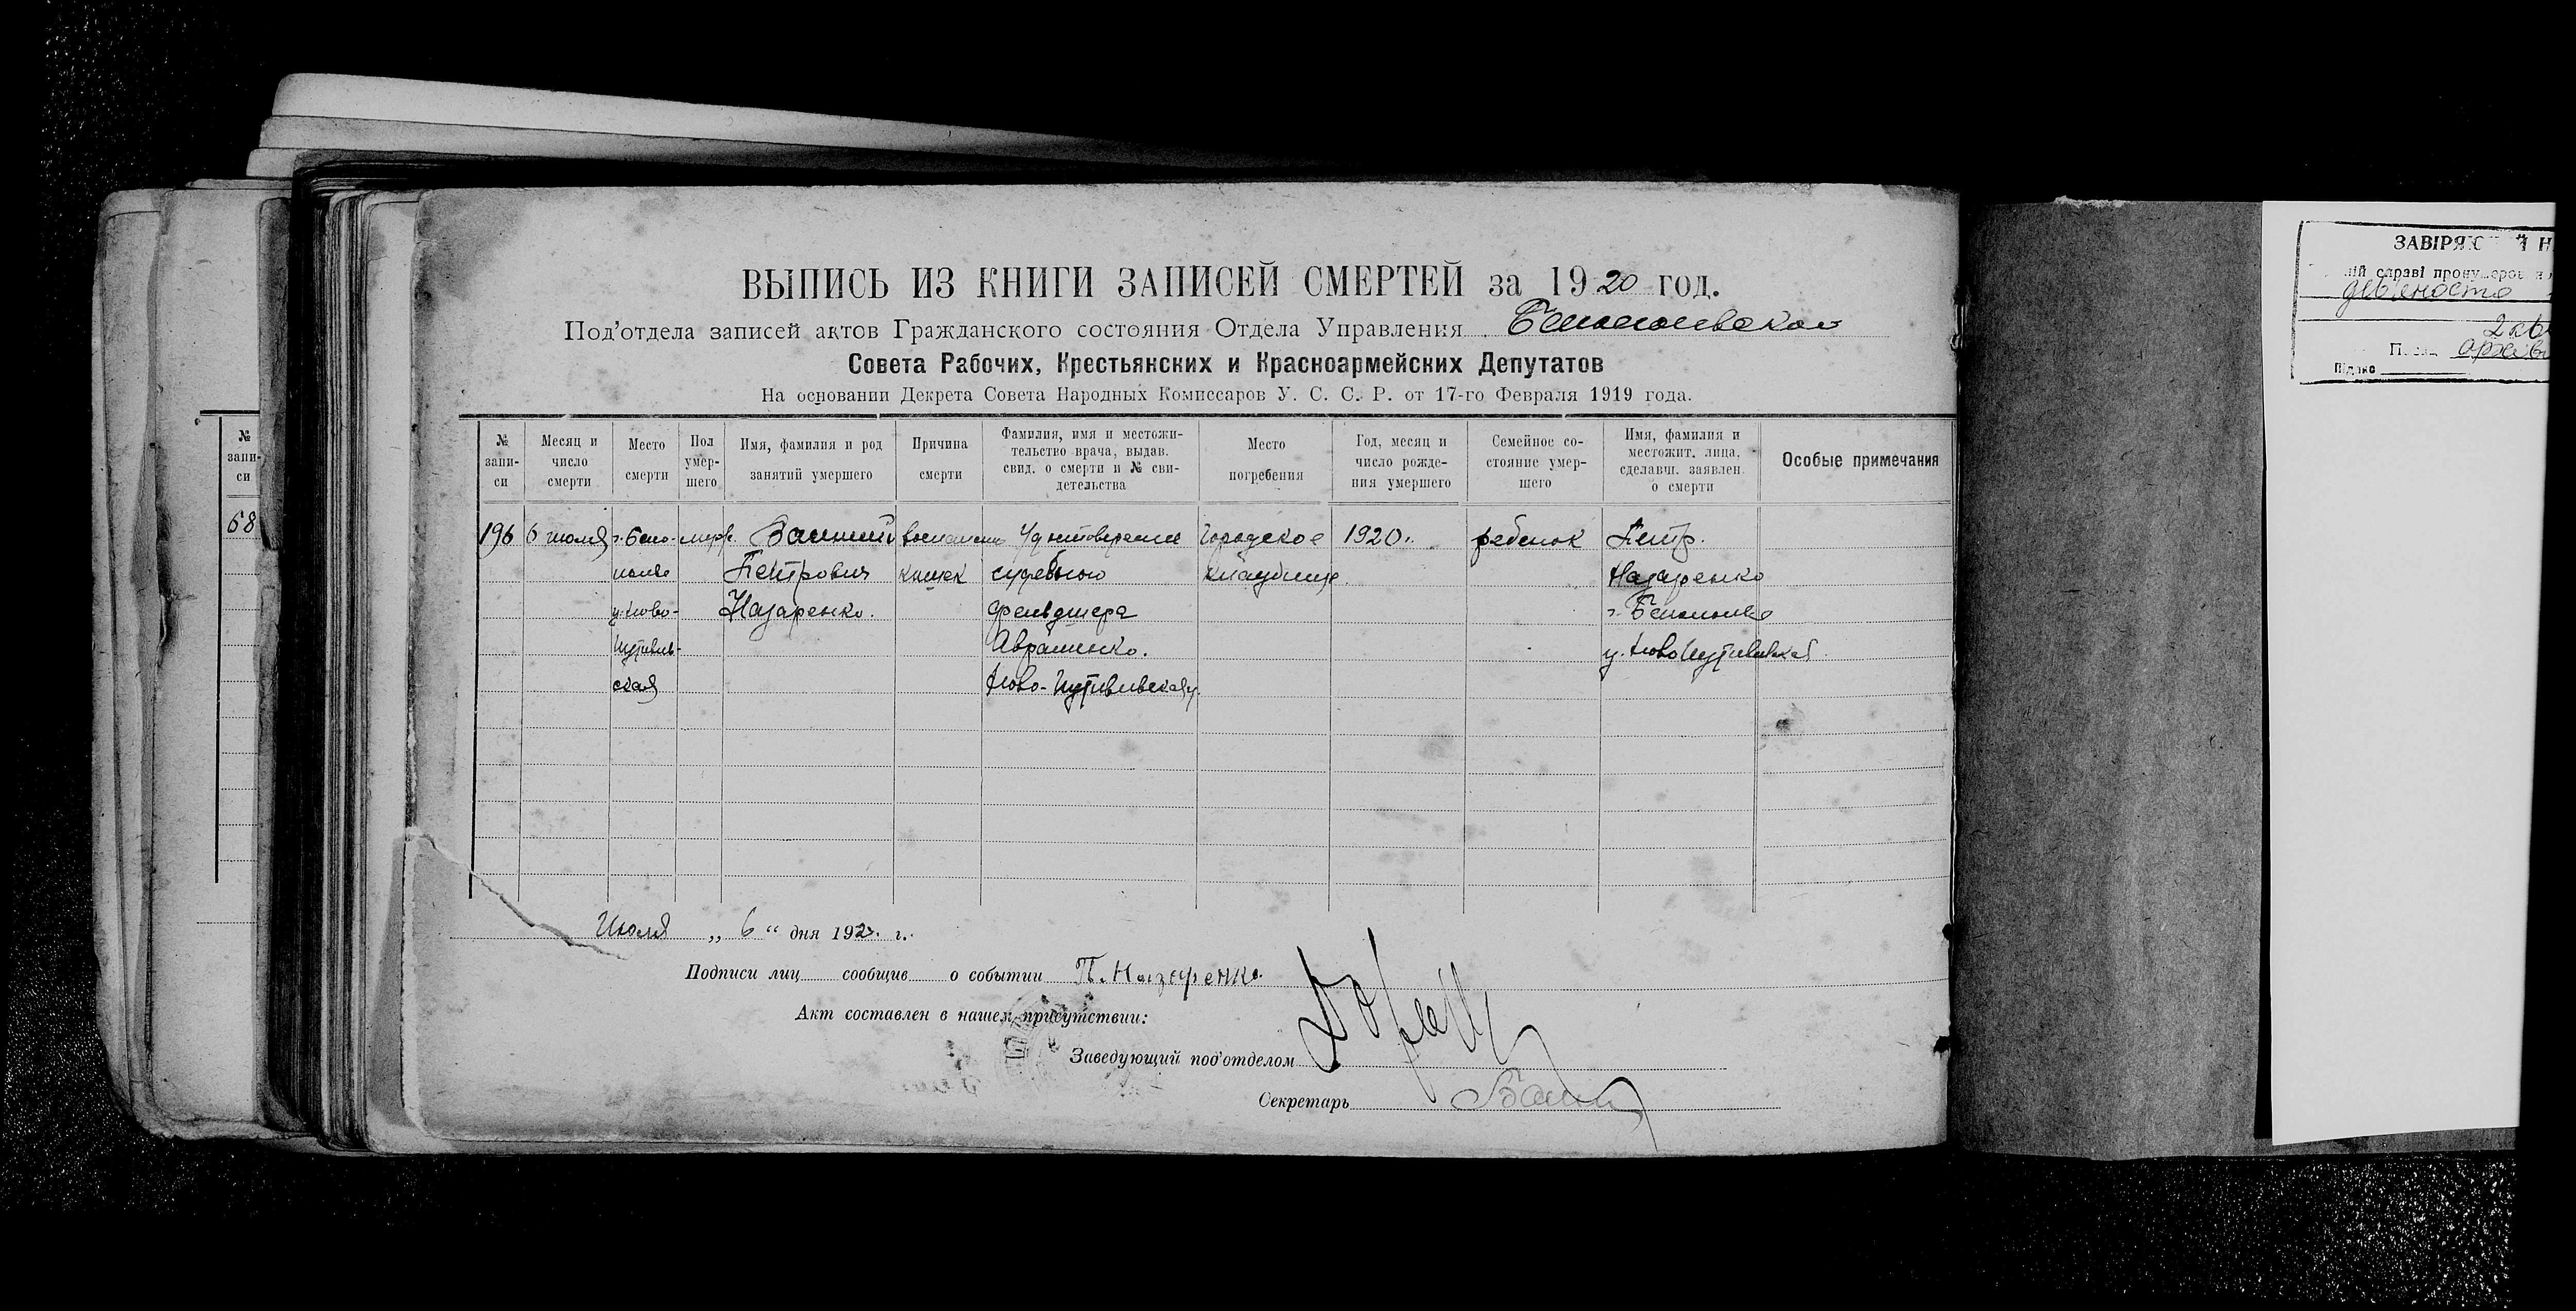 ВЫПИСЬ ИЗ КНИГИ ЗАПИСЕЙ СМЕРТЕЙ за 1920 год.
Под'отдела записей актов Гражданского состояния Отдела Управления
Совета Рабочих, Крестьянских и Красноармейских Депутатов
На основании Декрета Совета Народных Комиссаров У. С. С. Р. от 17-го Февраля 1919 года.
№ запи-
си
№ запи-
си
Месяц и
число
смерти
Место
смерти
Пол
умер-
шего
Имя, фамилия и род
занятий умершего
Причина
смерти
Фамилия, имя и местожи-
тельство врача, выдав.
свид. о смерти и № сви-
детельства
Место
погребения
Год, месяц и
число рожде-
ния умершего
Семейное со-
стояние умер-
шего
Имя, фамилия и
местожит. лица,
сделавш. заявлен.
о смерти
Особые примечания
68
196
6 июля
у. Ново-
Путивль-
ская
Петрович
Назаренко.
кишек
Удостоверение
судебного
фельдшера
Авраменко.
Ново-Путивльская у.
Городское
кладбище
1920г.
ребенок
Петр.
Назаренко
у. НовоПутивльская
Июля „ 6 “ дня 192 г.
Подписи лиц сообщив о событии П. Назаренко.
Акт составлен в нашем присутствии:
Заведующий под'отделом
Секретарь
ій справі
дев'яносто
Підпис